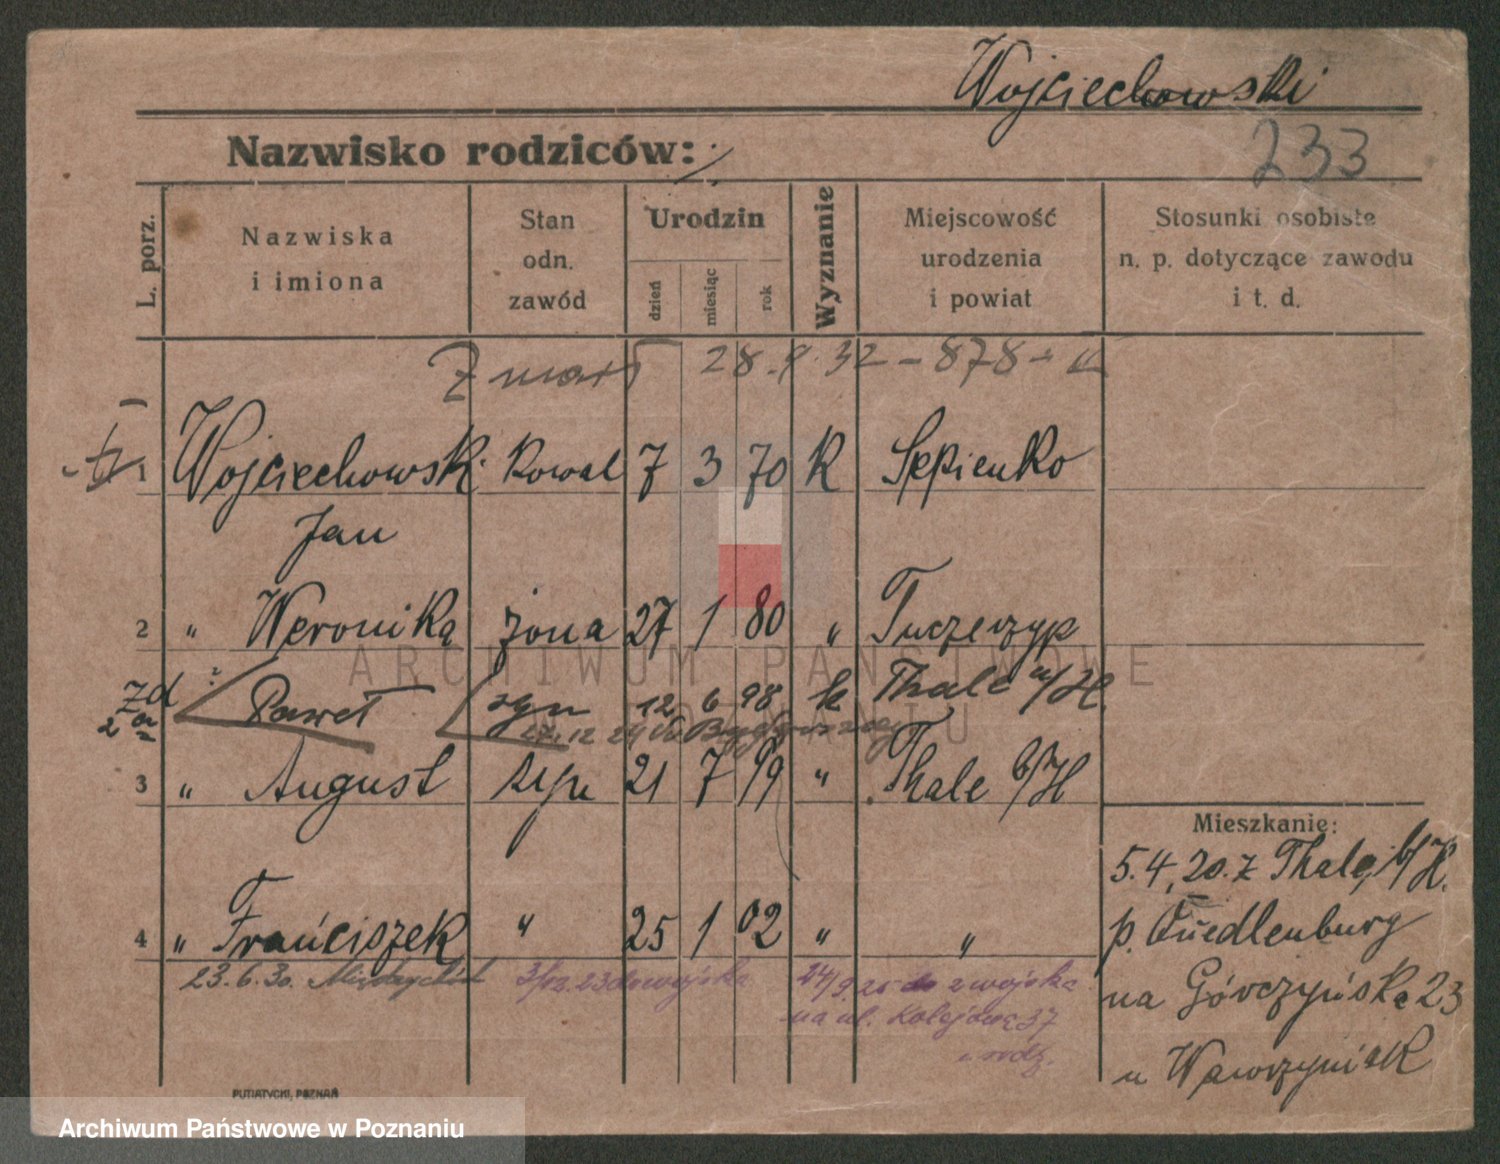 Wojciechowski
233
Nazwisko rodziców:
L. porz.
Nazwiska i imiona
Stan odn. zawód
Urodzin
dzień miesiąc rok
Wyznanie
Miejscowość urodzenia i powiat
Stosunki osobiste n. p. dotyczące zawodu i t. d.
Zmarł 28.9.32 – 878
1 Wojciechowski kowal 7 3 70 K Sępienko
Jan
2 " Weronika żona 27 1 80 " Turzerzyp
ARCHIWUM PAŃSTWOWE
W POZNANIU
Paweł syn 12 6 98 k Thale a/H.
27.12 24 Bydgoszczy
3 " August syn 21 7 99 " Thale b/H
Mieszkanie:
5.4.20. z Thale, b/H.
4 " Frańciszek " 25 1 02 " "
p. Quedlenburg
23.6.30. Międzychód 3/12.23 do wojska 24/9.25 z wojska
na Górczyńską 23
na ul. Kolejową 37
u Wawrzyniak
PUTIATYCKI, POZNAŃ
Archiwum Państwowe w Poznaniu